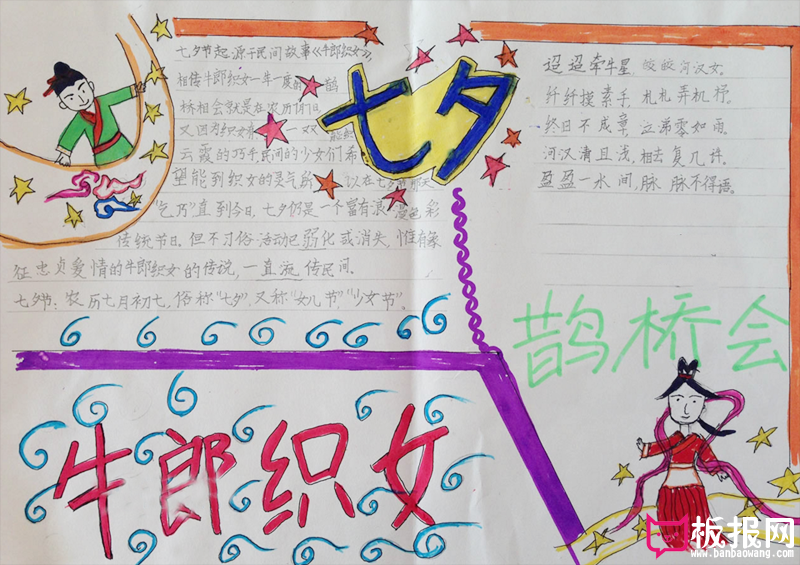 七夕节起源于民间故事《牛郎织女》,
相传牛郎织女一年一度的鹊
桥相会就是在农历
又因为织女 一双
云霞的巧手民间的少女们希
望能到织女的灵气所 以在七夕
"乞巧"直到今日,七夕仍是一个富有浪漫色彩
传统节日.但不习俗活动已弱化或消失,惟有象
征忠贞爱情的牛郎织女的传说,一直流传民间.
七夕节:农历七月初七,俗称"七夕",又称"女儿节""少女节"。
七夕
迢迢牵牛星,皎皎河汉女.
纤纤擢素手,札札弄机杼.
终日不成章,泣涕零如雨.
河汉清且浅,相去复几许.
盈盈一水间,脉脉不得语.
鹊桥会
牛郎织女
板报网
www.banbaowang.com